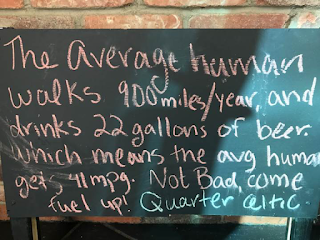 The average human
walks 900 miles/year, and
drinks 22 gallons of beer.
which means the avg human
gets 41 mpg. Not Bad, come
fuel up! Quarter Celtic.